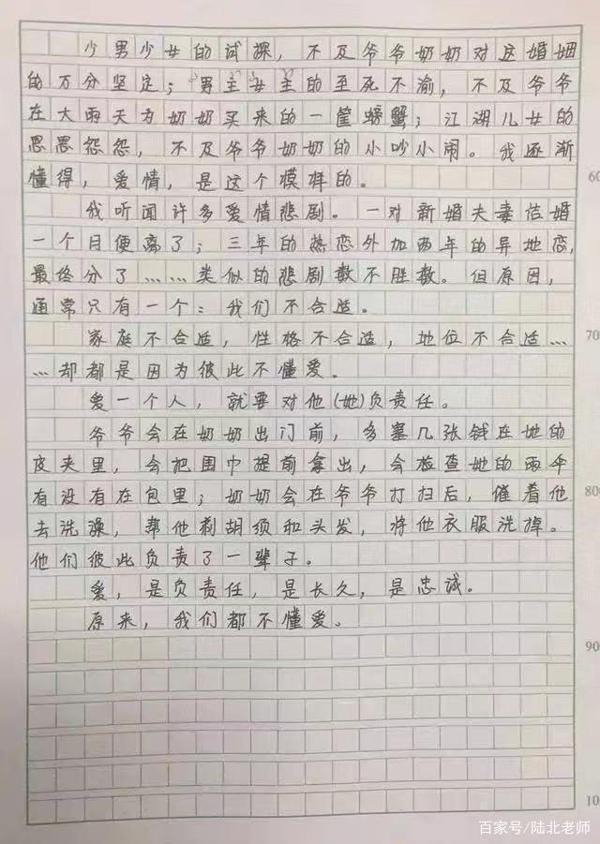 少男少女的试探，不及爷爷奶奶对这婚姻
的万分坚定；男主女主的至死不渝，不及爷爷
在大雨天为奶奶买来的一筐螃蟹；江湖儿女的
恩恩怨怨，不及爷爷奶奶的小吵小闹。我逐渐
懂得，爱情，是这个模样的。
60
我听闻许多爱情悲剧。一对新婚夫妻结婚
一个月便离了；三年的热恋外加两年的异地恋，
最终分了……类似的悲剧数不胜数。但原因，
通常只有一个：我们不合适。
家庭不合适，性格不合适，地位不合适…
70
…却都是因为彼此不懂爱。
爱一个人，就要对他(她)负责任。
爷爷会在奶奶出门前，多塞几张钱在她的
皮夹里，会把围巾提前拿出，会检查她的雨伞
有没有在包里；奶奶会在爷爷打扫后，催着他
800
去洗澡，帮他剃胡须和头发，将他衣服洗掉。
他们彼此负责了一辈子。
爱，是负责任，是长久，是忠诚。
原来，我们都不懂爱。
90
10
百家号/陆北老师